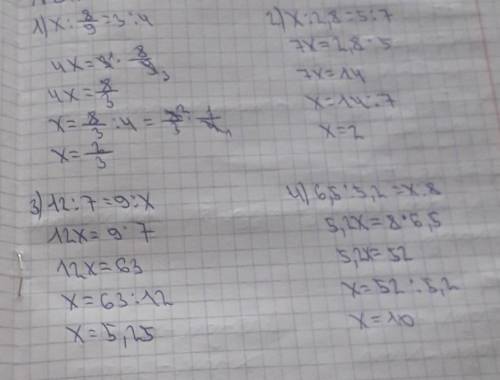 1) x : 8/9 = 3 : 4
4x = 3 · 8/9 3
4x = 8/3
x = 8/3 : 4 = 8/3 2 · 1/4 1
x = 2/3
2) x : 2,8 = 5 : 7
7x = 2,8 · 5
7x = 14
x = 14 : 7
x = 2
3) 12 : 7 = 9 : x
12x = 9 · 7
12x = 63
x = 63 : 12
x = 5,25
4) 6,5 : 5,2 = x : 8
5,2x = 8 · 6,5
5,2x = 52
x = 52 : 5,2
x = 10